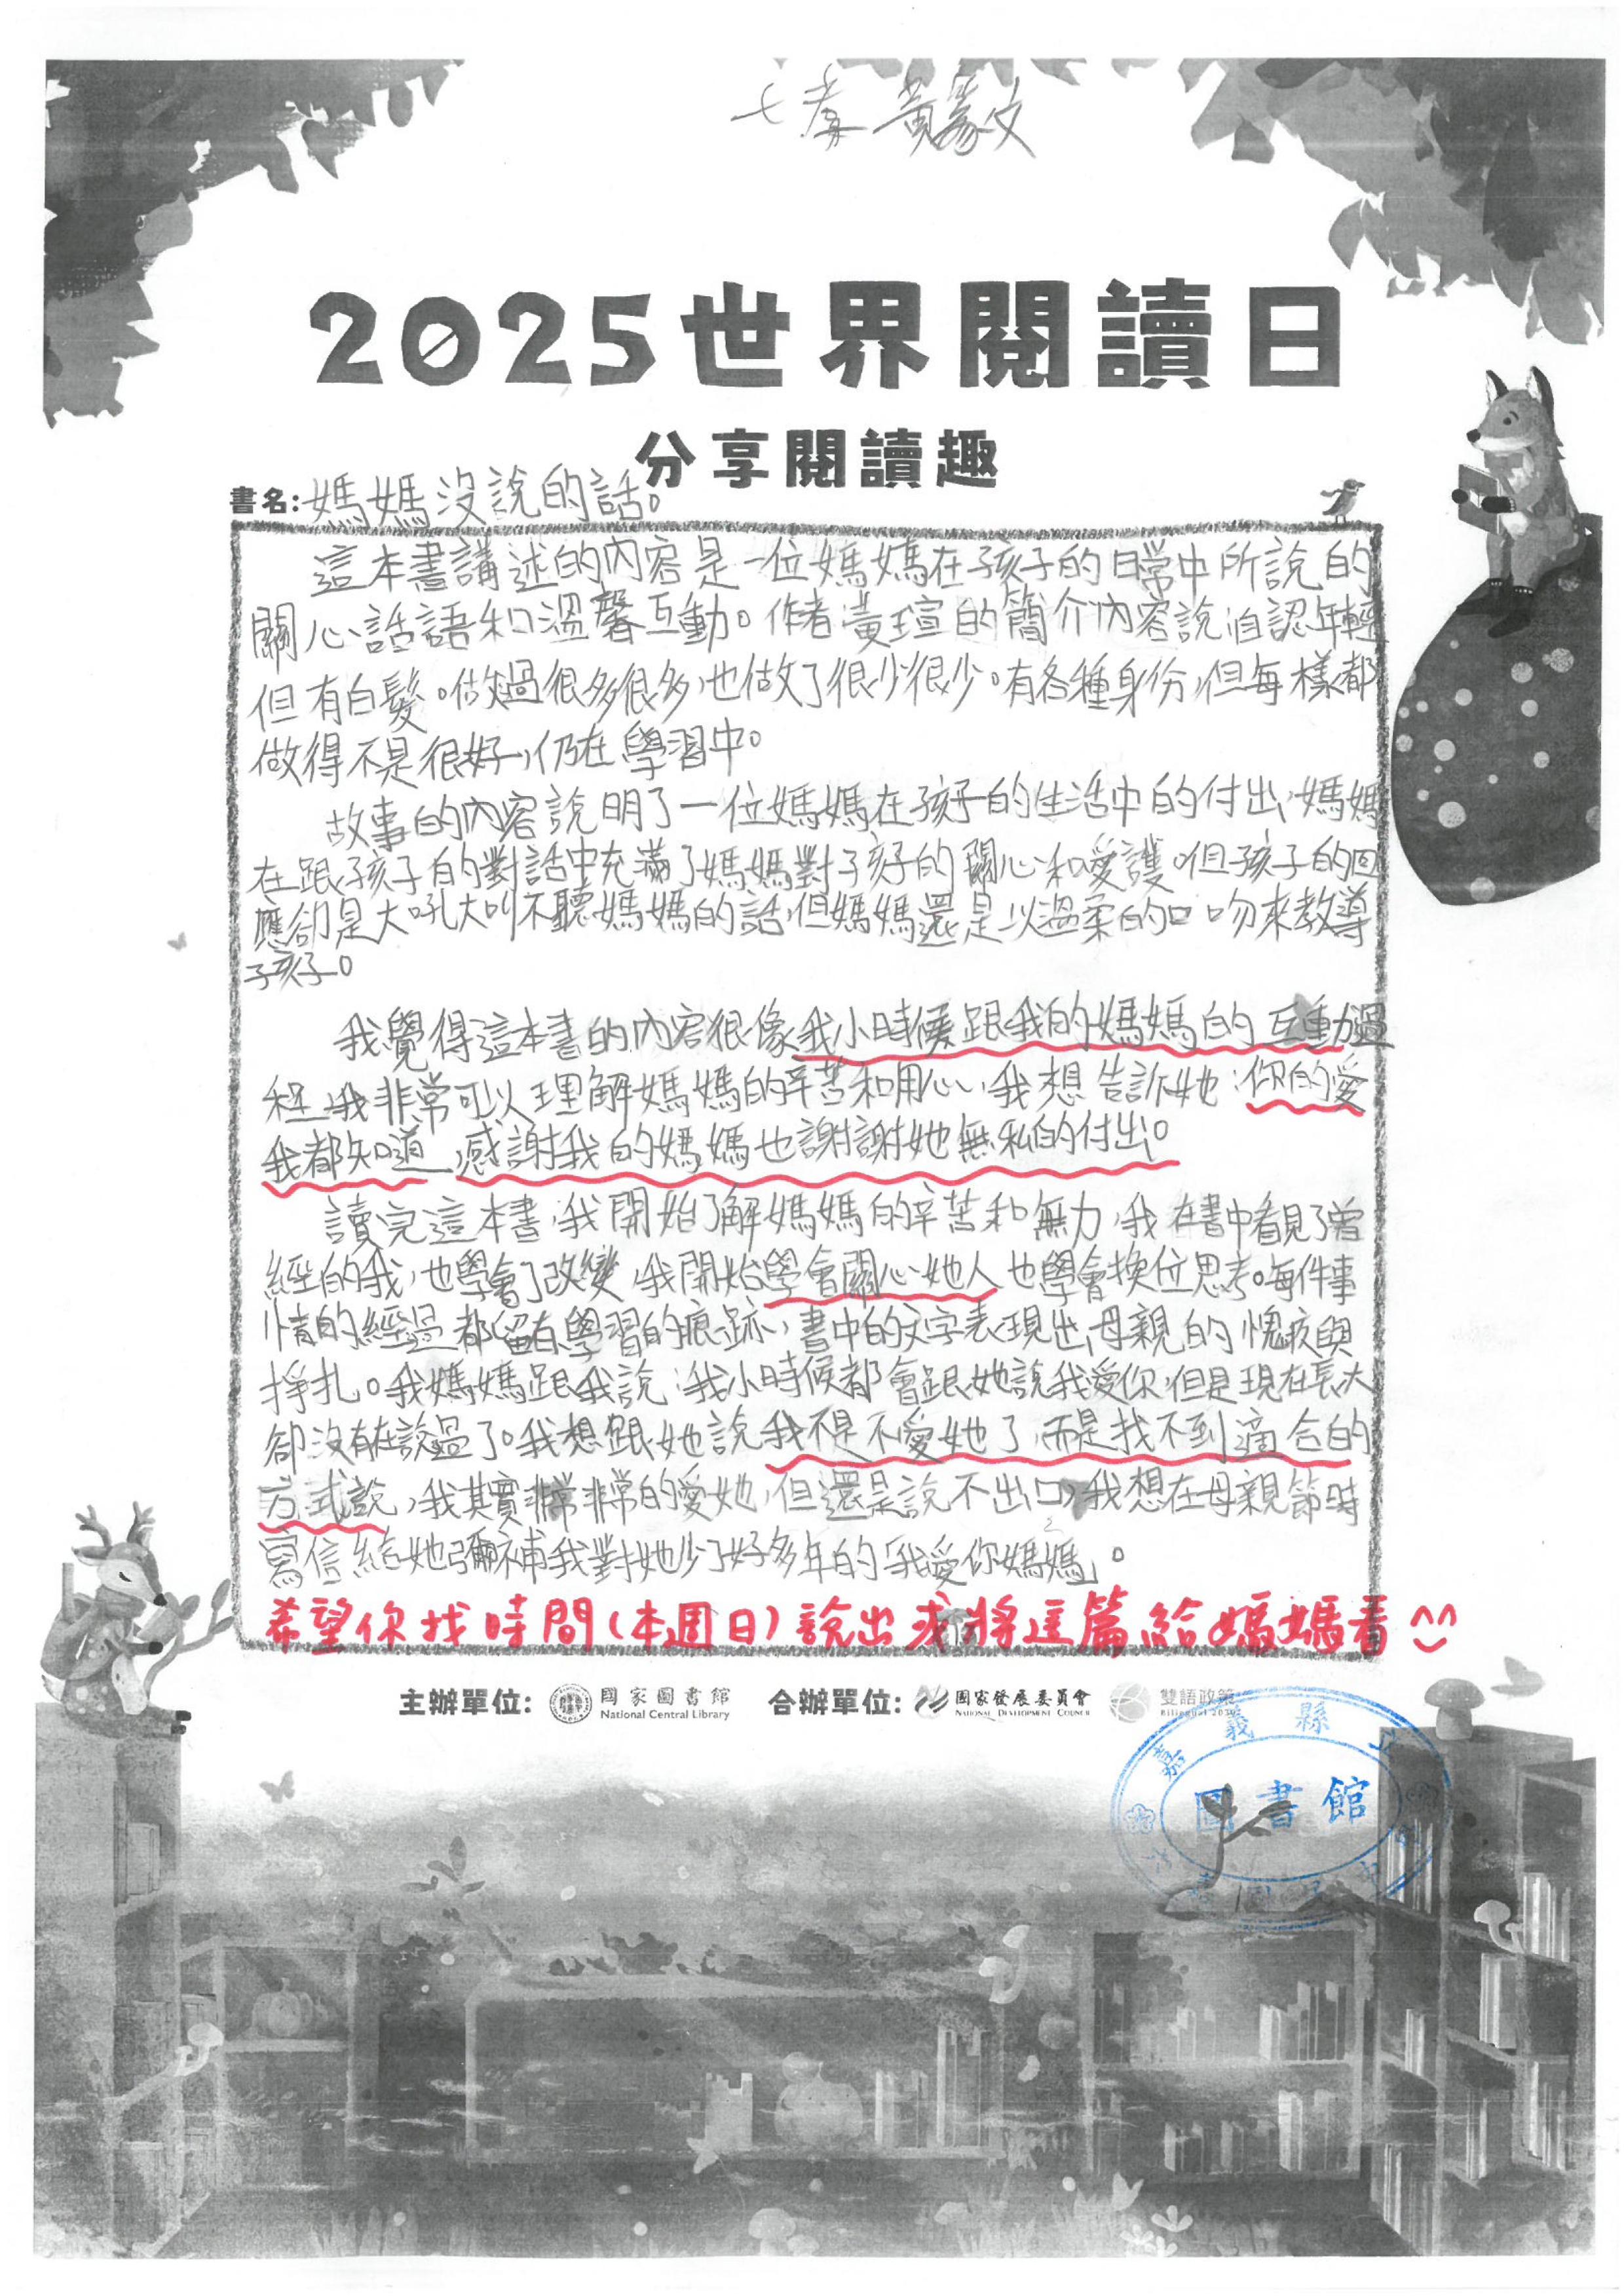 七孝 黃豢文
2025世界閱讀日
分享閱讀趣
書名:媽媽沒說的話。
這本書講述的內容是一位媽媽在孩子的日常中所說的
關心話語和溫馨互動。作者黃瑄的簡介內容說自認年輕
但有白髮。做過很多很多,也做了很少很少。有各種身份,但每樣都
做得不是很好,仍在學習中。
故事的內容說明了一位媽媽在孩子的生活中的付出,媽媽
在跟孩子的對話中充滿了媽媽對孩子的關心和愛護。但孩子的回
應卻是大吼大叫不聽媽媽的話,但媽媽還是以溫柔的口吻來教導
孩子。
我覺得這本書的內容很像我小時候跟我的媽媽的互動過
程,我非常可以理解媽媽的辛苦和用心,我想告訴她:你的愛
我都知道,感謝我的媽媽也謝謝她無私的付出。
讀完這本書,我開始了解媽媽的辛苦和無力,我在書中看見了曾
經的我,也學會了改變,我開始學會關心她人也學會換位思考。每件事
情的經過都留有學習的痕跡,書中的文字表現出母親的愧疚與
掙扎。我媽媽跟我說:我小時候都會跟她說我愛你,但是現在長大
卻沒有在說過了。我想跟她說我不是不愛她了,而是找不到適合的
方式說,我其實非常非常的愛她,但還是說不出口,我想在母親節時
寫信給她彌補我對她少了好多年的「我愛你媽媽」。
希望你找時間(本週日)說出或將這篇給媽媽看^^
主辦單位: 國家圖書館 合辦單位: 國家發展委員會 雙語政策
National Central Library NATIONAL DEVELOPMENT COUNCIL Bilingual 2030
嘉義縣
圖書館